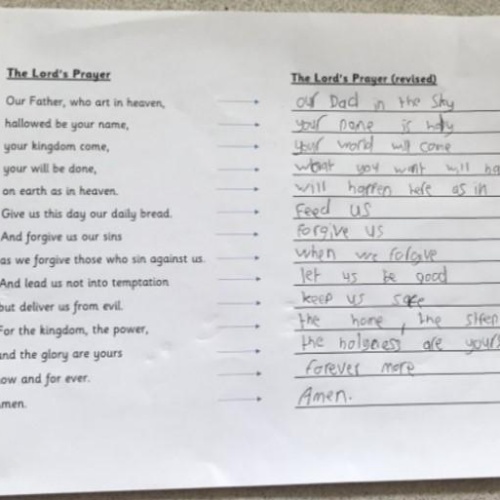 The Lord's Prayer
Our Father, who art in heaven,
hallowed be your name,
your kingdom come,
your will be done,
on earth as in heaven.
Give us this day our daily bread.
And forgive us our sins
as we forgive those who sin against us.
And lead us not into temptation
but deliver us from evil.
For the kingdom, the power,
and the glory are yours
now and for ever.
Amen.
The Lord's Prayer (revised)
our Dad in the sky
your name is holy
your world will come
what you want will ha
will happen here as in
Feed us
forgive us
when we forgive
let us be good
keep us safe
the home, the
the holyness are yours
forever more
Amen.